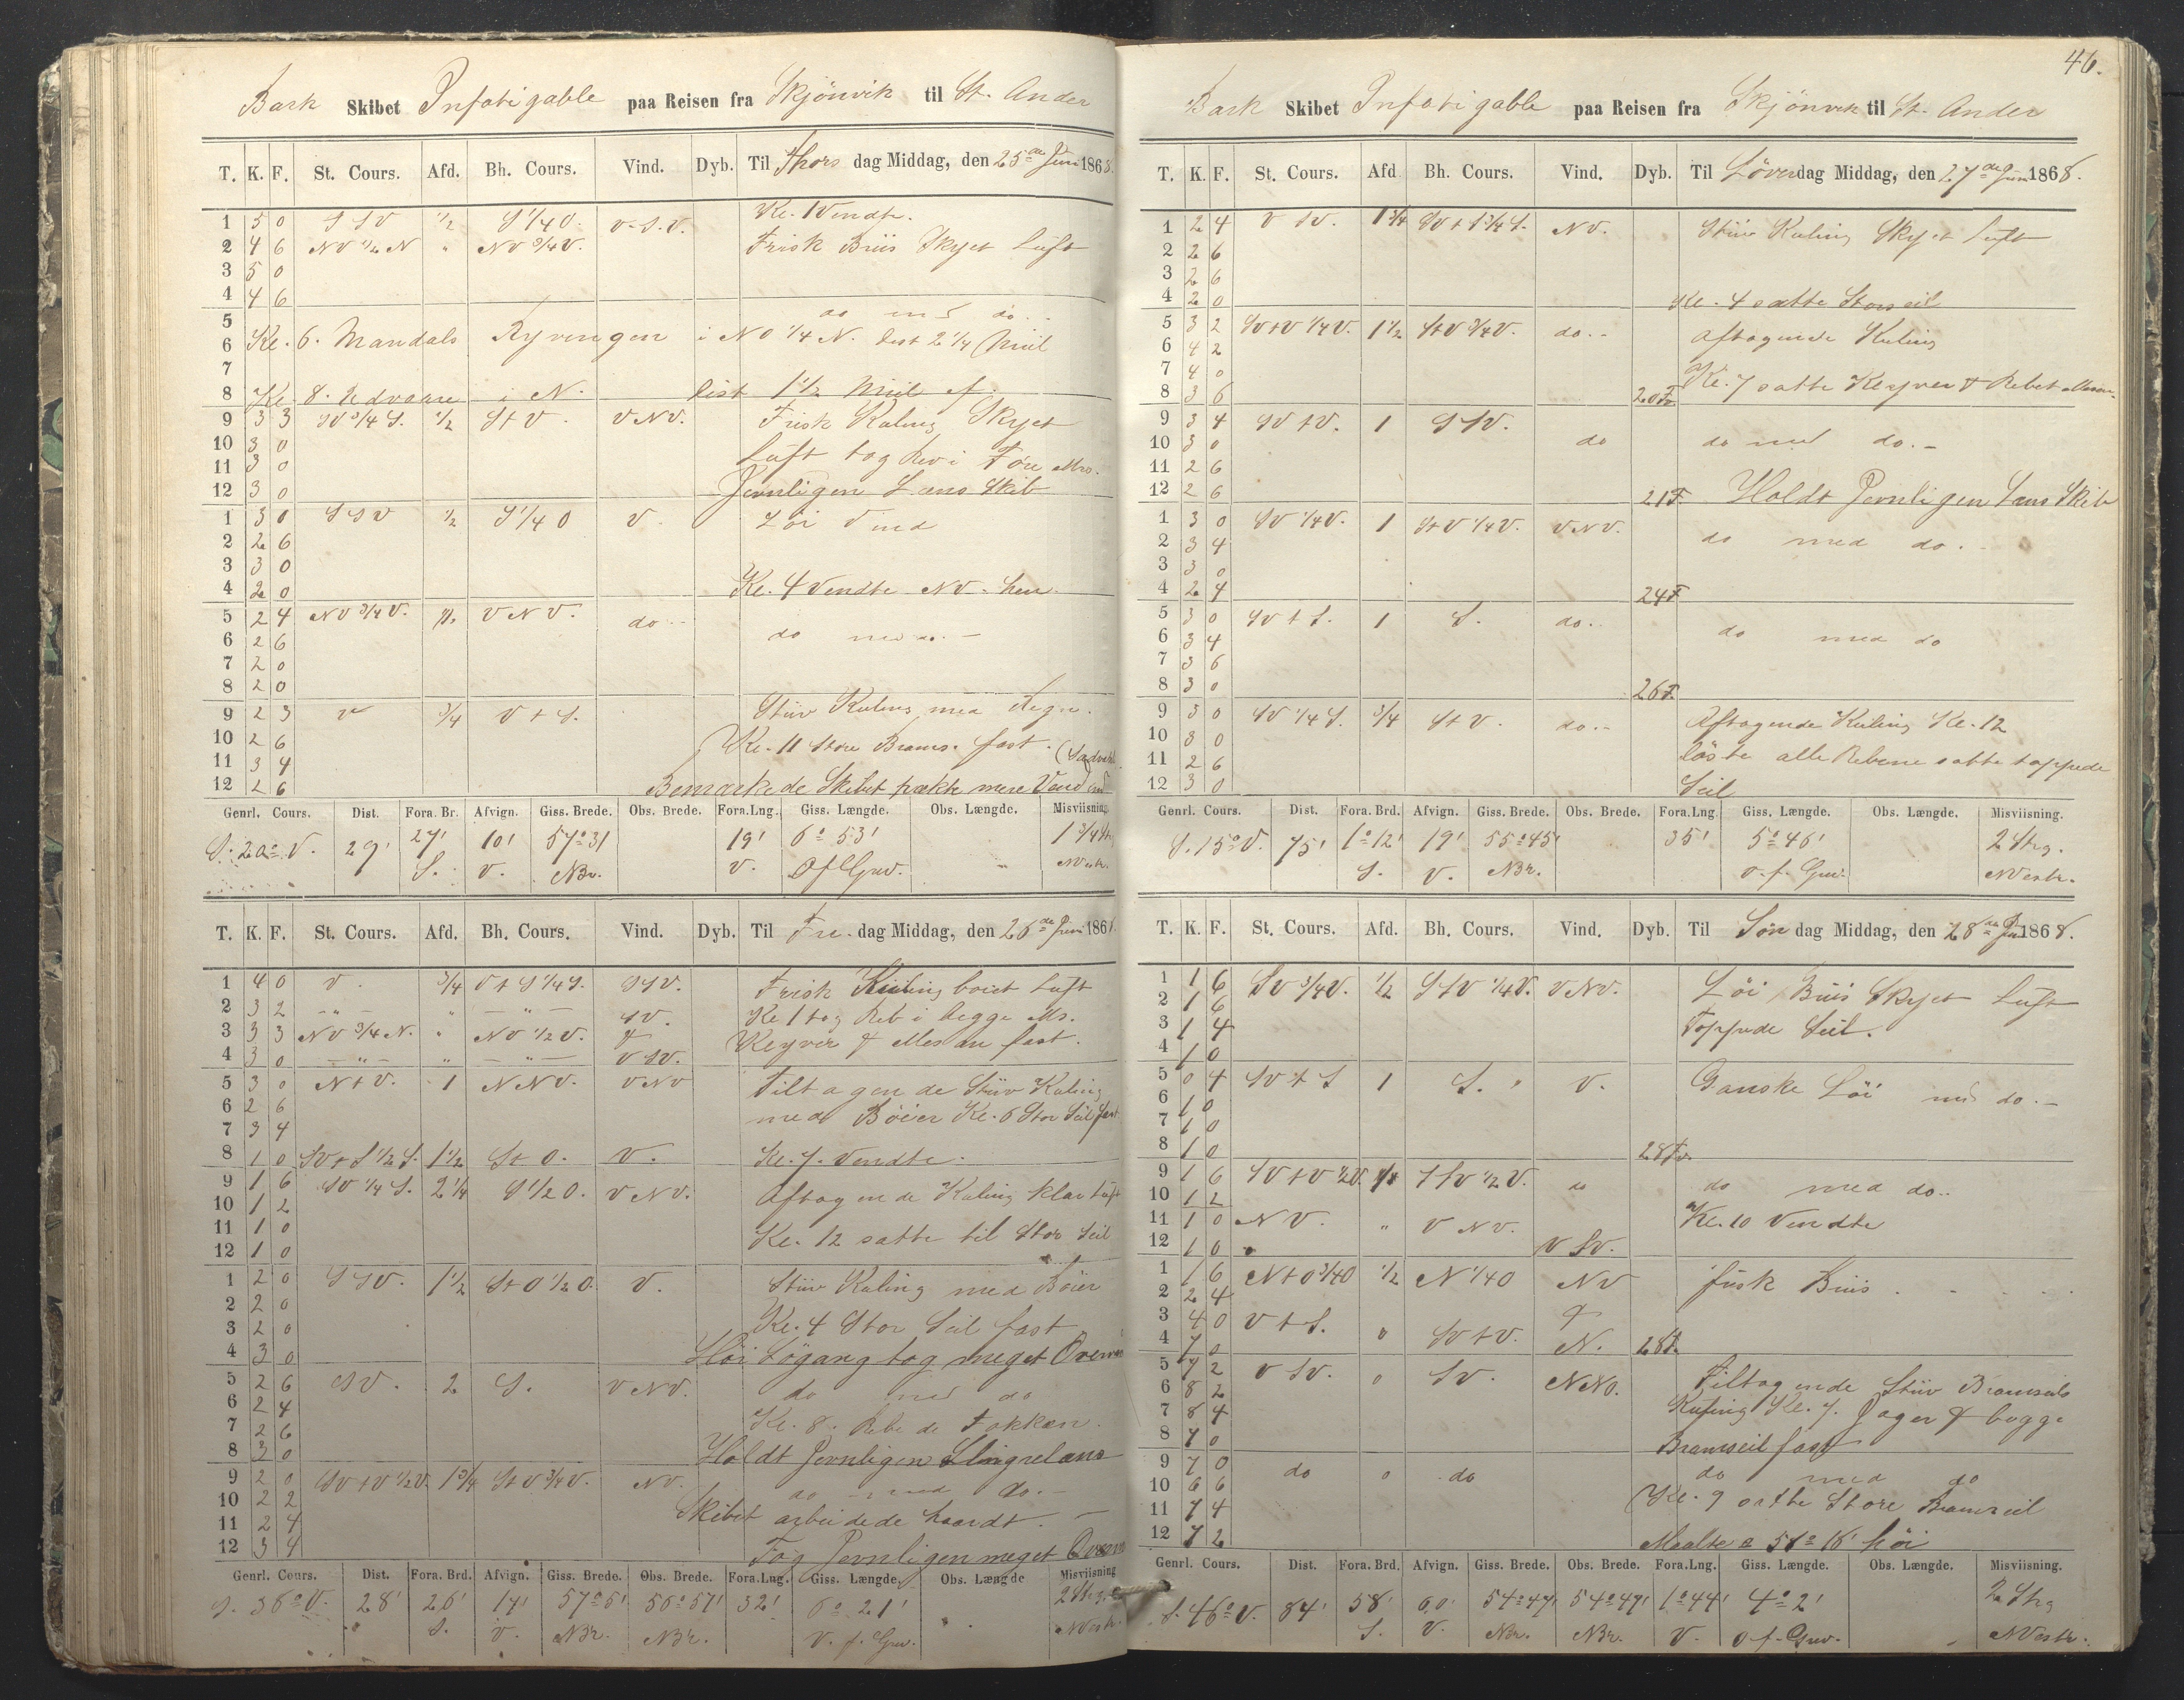 Bark Skibet Infatigable paa Reisen fra Skjönvik til St. Ander
T. K. F. St. Cours. Afd. Bh. Cours. Vind. Dyb. Til Thors dag Middag, den 25de Juni 1868.
1 5 0 SSV 1/2 S 1/4 O. V.S.V. Kl. 1 Vendte.
2 4 6 NV 1/2 N " NV 3/4 V. Frisk Briis Skyet Luft
3 5 0
4 4 6
5 do med do.
6 Kl. 6. Mandals Ryvingen i NO 1/4 N. Dist 2 1/4 Miil
7
8 Kl 8. Udvaare i N. Dist 1 1/2 Miil af.
9 3 3 SV 3/4 S. 1/2 S t V. VNV. Frisk Kuling Skyet
10 3 0 Luft tog Rev i Före Mrs.
11 3 0
12 3 0 Jevnligen Læns Skib
1 3 0 SSV 1/2 S 1/4 O V. Löi Vind
2 2 6
3 3 0
4 2 0 Kl. 4 Vendte NV. hen.
5 2 4 NV 3/4 V. 1/2 VNV. do do med do.
6 2 6
7 2 0
8 2 0
9 2 3 V 3/4 V t S. Stiiv Kuling med Regn.
10 2 6 Kl. 11 Store Brams. fast.
11 3 4
12 2 6 Bemærkede Skibet trækte mere Vand end
Genrl. Cours. Dist. Fora. Br. Afvign. Giss. Brede. Obs. Brede. Fora.Lng. Giss. Længde. Obs. Længde. Misviisning.
S. 20° V. 29' 27' 10' 57° 31 19' 6° 53' 1 3/4 Str
S. V. NBr. V. O f Grw. NVestr.
T. K. F. St. Cours. Afd. Bh. Cours. Vind. Dyb. Til Fre dag Middag, den 26de Juni 186
1 4 0 V. 3/4 V t S 1/4 S. SSV. Frisk Kuling boiet Luft
2 3 2 " " " SV. Kl 1 tog Reb i begge Ms.
3 3 3 NV 3/4 N. " NV 1/2 V. & Klyver & Mesan fast.
4 3 0 " " " VSV.
5 3 0 N t V. 1 NNV. VNV Tiltagende Stiiv Kuling
6 2 6 med Böier Kl. 6 Stor Seil fast
7 3 4
8 1 0 SV t S 1/2 S. 1 1/2 S t O. V. Kl. 7. Vendte.
9 1 6 SV 1/4 S. 2 1/4 S 1/2 O. VNV. Aftagende Kuling klar Luft
10 1 2
11 1 0 Kl. 12 satte til Stor Seil
12 1 0
1 2 0 SSV. 1 1/2 S t O 1/2 O. V. Stiiv Kuling med Böier
2 2 0 Kl. 4 Stor Seil fast
3 2 0
4 3 0 Höi Sögang tog meget Overv
5 2 6 SV. 2 S. VNV. do med do
6 2 4 Kl. 8. Rebede Fokken.
7 2 6
8 3 0 Holdt Jevnligen Slingrelæns
9 2 0 SV t V 1/2 V. 1 3/4 S t V 3/4 V. NV. do med do.
10 2 2 Skibet arbeidede haardt.
11 2 4
12 3 4 Tog Jevnligen meget Overv
Genrl. Cours. Dist. Fora. Brd. Afvign. Giss. Brede. Obs. Brede. Fora.Lng. Giss. Længde. Obs. Længde Misviisning
S. 36° V. 28' 26' 17' 57° 5' 56° 57' 32' 6° 21' 2 Streg
S. V. NBr. NBr. V. f. Grw. NVestr.
46.
Bark Skibet Infatigable paa Reisen fra Skjönvik til St. Ander
T. K. F. St. Cours. Afd Bh. Cours. Vind. Dyb. Til Löverdag Middag, den 27de Juni 1868.
1 2 4 V SV. 1 3/4 SV t S 3/4 S. NV. Stiiv Kuling Skyet Luft
2 2 6
3 2 6
4 2 0 Kl. 4 satte Storseil
5 3 2 SV t V 1/4 V. 1 1/2 S t V 3/4 V. do. aftagende Kuling
6 4 2
7 4 0 Kl. 7 satte Klyver & Rebet Mesan.
8 3 6 20 F.
9 3 4 SV t V. 1 SSV. do do med do.
10 3 0
11 2 6
12 2 6 21 F. Holdt Jevnligen Læns Skib
1 3 0 SV 1/4 V. 1 S t V 1/4 V. VNV. do med do.
2 3 4
3 3 0
4 2 4 24 F
5 3 0 SV t S. 1 S. do. do med do
6 3 4
7 3 6
8 3 0 26 F.
9 3 0 SV 1/4 S. 3/4 S t V. do. Aftagende Kuling Kl. 12
10 3 0 löste alle Rebene satte toppede
11 2 6
12 3 0 Seil
Genrl. Cours. Dist. Fora. Brd. Afvign. Giss. Brede. Obs. Brede. Fora.Lng Giss. Længde. Obs. Længde. Misviisning.
S. 15° V. 75' 1° 12' 19' 55° 45' 35' 5° 46' 2 Strg.
S. V. NBr. O. f. Grw. NVestr.
T. K. F. St. Cours. Afd. Bh. Cours. Vind. Dyb. Til Søn dag Middag, den 28de Juni 1868.
1 1 6 SV 3/4 V. 1/2 SSV 1/4 V. VNV. Löi Briis Skyet Luft
2 1 6
3 1 4 Toppede Seil.
4 1 0
5 0 4 SV t S 1 S. V. Ganske Löi med do.
6 1 0
7 1 0
8 1 0 28 Fv.
9 1 6 SV t V 1/2 V. SSV 1/2 V. do do med do.
10 1 2 Kl. 10 Vendte
11 1 0 NV. " VNV.
12 1 0 V SV.
1 1 6 N t O 3/4 O 1/2 N 1/4 O NV frisk Briis
2 2 4 &
3 4 0 V t S. 0 SV t V.
4 7 0 N. 28 F.
5 7 2 V SV. 0 SV. NNO. Tiltagende Stiiv Bramseils
6 8 2 Kuling Kl. 7. Jager & begge
7 8 4
8 7 0 Bramseil fast
9 7 0 do 0 do do med do
10 6 6 Kl. 9 satte Store Bramseil
11 7 4
12 7 2 Maalte 51° 16' höi
Genrl. Cours. Dist. Fora. Brd. Afvign. Giss. Brede. Obs. Brede. Fora.Lng. Giss. Længde. Obs. Længde. Misviisning.
S. 46° V. 84' 58' 60' 54° 47' 54° 49' 1° 44' 4° 2' 2 Strg
S. V. NBr. NBr. V. O f. Grw. NVestr.